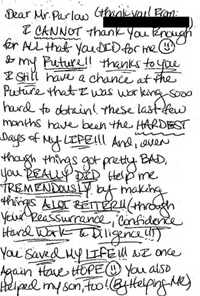 Dear Mr. Parlow (thank you! From:
I CANNOT thank you Enough
for ALL that you DID for me
& my Future!! thanks to you
I still have a chance at the
Future that I was working sooo
hard to obtain! these last few
months have been the HARDEST
Days of my LIFE!!! And, even
though things got pretty BAD,
you REALLY DID Help me
TREMENDOUSLY by making
things ALOT BETTER!! (through
your Reassurrance, Confidence
Hard Work & Diligence!!!)
You saved My LIFE!!! & I once
Again Have HOPE You also
Helped my son, too! (By Helping Me)